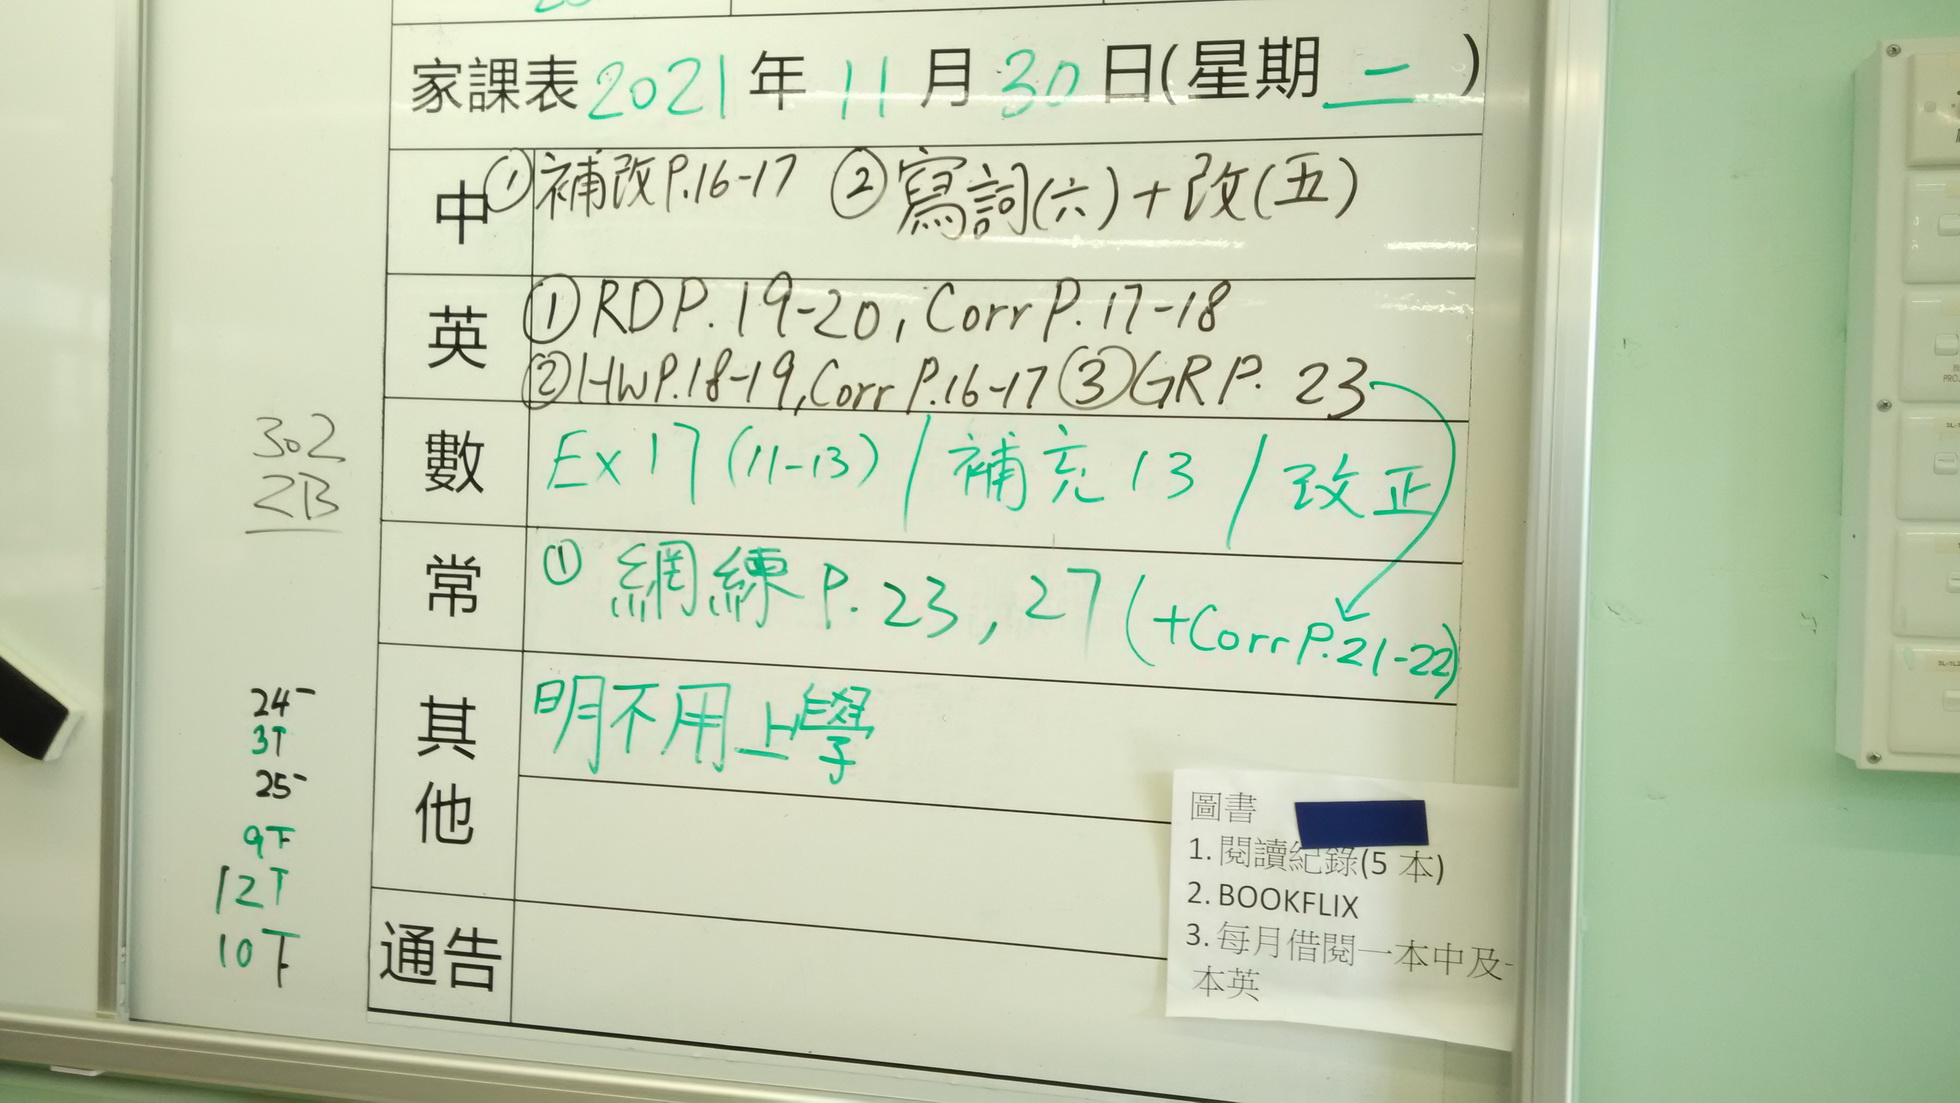 家課表 2021 年 11 月 30 日(星期二)
中 ①補改P.16-17 ②寫詞(六)+改(五)
英 ①RD P.19-20, Corr P.17-18
②HW P.18-19, Corr P.16-17 ③GR P. 23
(+Corr P.21-22)
數 Ex 17 (11-13) / 補充 13 / 改正
常 ① 網練 P. 23, 27
其他 明不用上學
通告
302
2B
24
3T
25
9下
12T
10下
圖書
1. 閱讀紀錄(5 本)
2. BOOKFLIX
3. 每月借閱一本中及一
本英